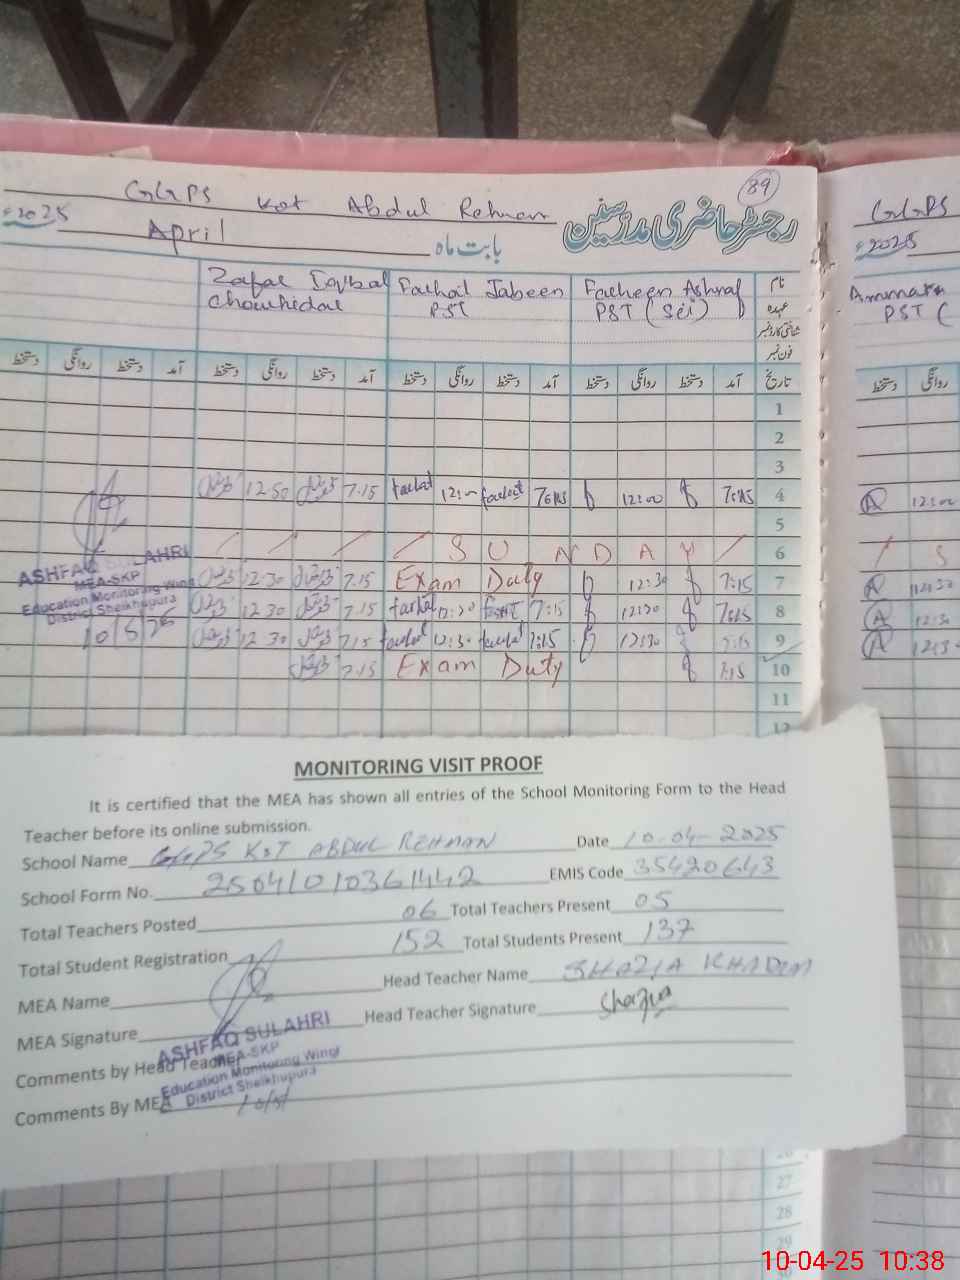 89
GGPS Kot Abdul Rehman
رجسٹر حاضری مدرسین
2025 April بابت ماہ
GGPS
2025
نام Farheen Ashraf Farhat Jabeen Zafar Iqbal
عہدہ PST (Sci) PST Chowkidar
شناختی کارڈ نمبر
فون نمبر
PST (
تاریخ آمد دستخط روانگی دستخط آمد دستخط روانگی دستخط آمد دستخط روانگی دستخط آمد دستخط روانگی دستخط
روانگی دستخط
1
2
3
12.50 7.15 Farhat 12:00 Farhat 12:00 4
A 12:00
5
/ / / / S U N D A Y / 6
/ S
12.30 7.15 Exam Duty 12:30 7:15 7
A 12:30
12.30 7.15 Farhat 7:15 12:30 7:15 8
A 12:30
12.30 7.15 Farhat 12:30 Farhat 7:15 12:30 7:15 9
A 12:30
7.15 Exam Duty 7:15 10
11
12
ASHFAQ SULAHRI
MEA-SKP
Education Monitoring Wing
District Sheikhupura
MONITORING VISIT PROOF
It is certified that the MEA has shown all entries of the School Monitoring Form to the Head
Teacher before its online submission.
School Name GGPS KOT ABDUL REHMAN Date 10.04-2025
School Form No. 25041010361442 EMIS Code 35420643
Total Teachers Posted 06 Total Teachers Present 05
Total Student Registration 152 Total Students Present 137
MEA Name Head Teacher Name SHAZIA KHADIM
MEA Signature Head Teacher Signature Shazia
Comments by Head Teacher
Comments By MEA
ASHFAQ SULAHRI
MEA-SKP
Education Monitoring Wing
District Sheikhupura
27
28
29
10-04-25 10:38